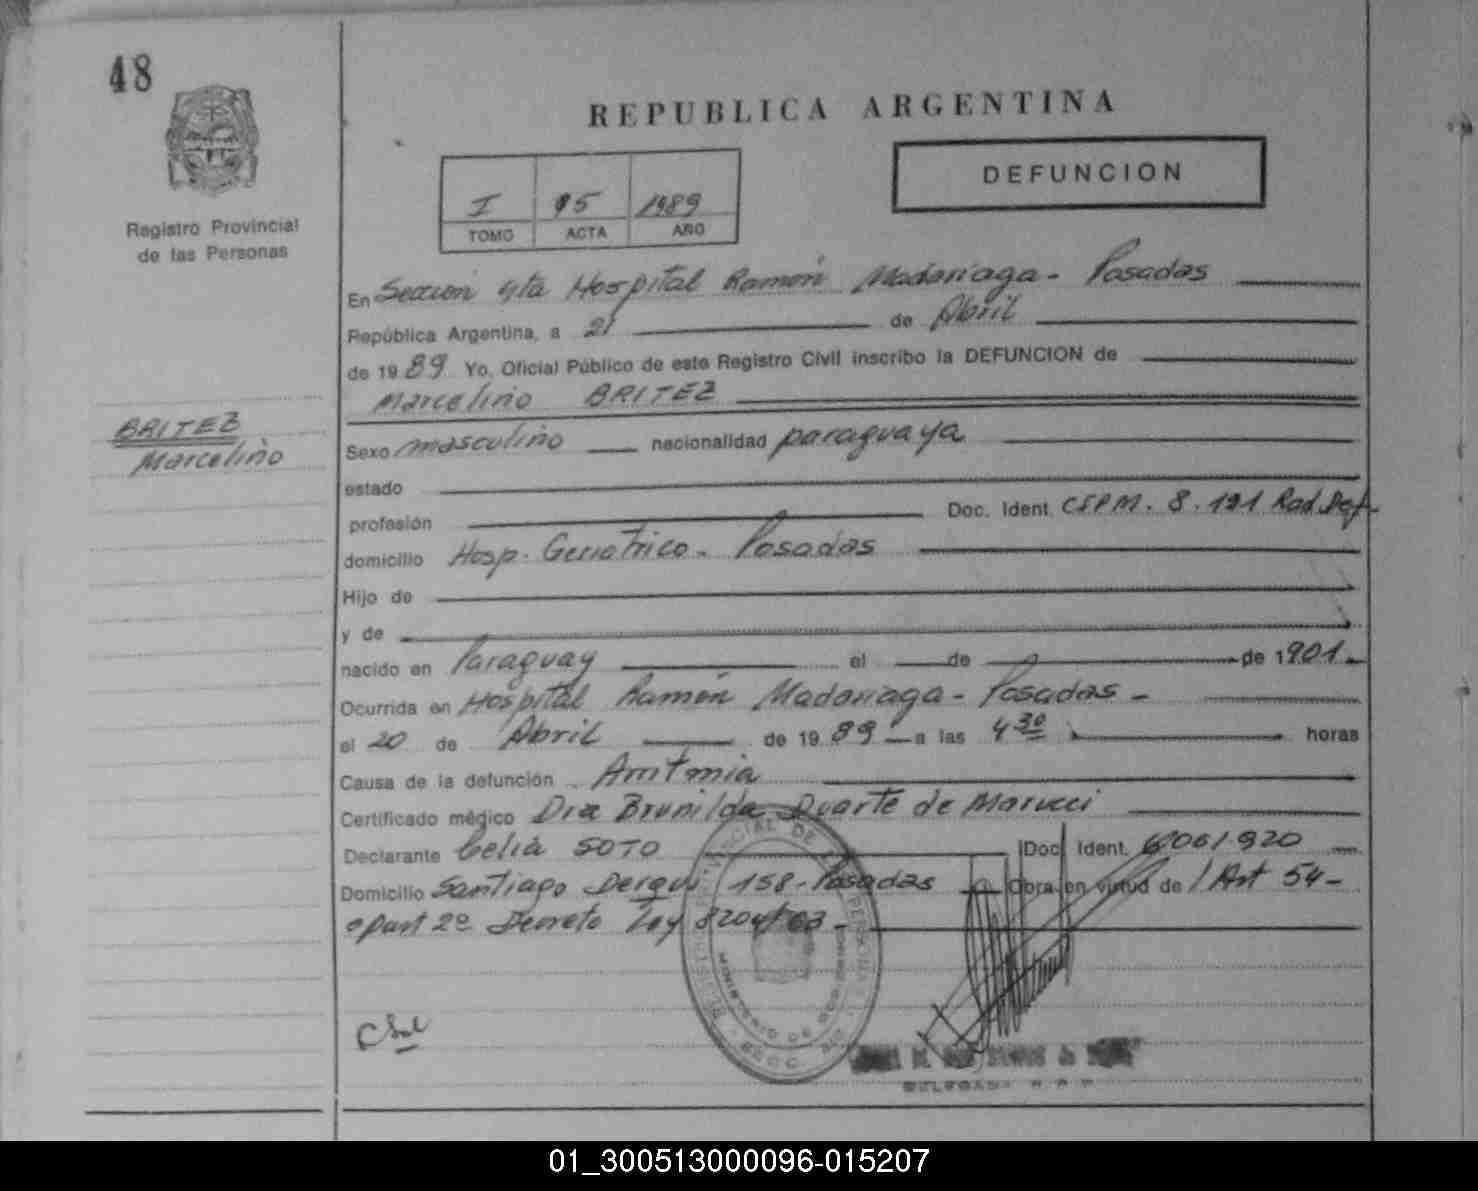 48
REPUBLICA ARGENTINA
DEFUNCION
I 95 1989
TOMO ACTA AÑO
Registro Provincial
de las Personas
En Sección 4ta Hospital Ramón Madariaga - Posadas
República Argentina, a 21 de Abril
de 1989 Yo, Oficial Público de este Registro Civil inscribo la DEFUNCION de
Marcelino BRITEZ
BRITEZ
Marcelino
Sexo masculino nacionalidad paraguaya
estado
profesión Doc. Ident. CIPM. 8.121 Rad. Def.
domicilio Hosp. Geriatrico - Posadas
Hijo de
y de
nacido en Paraguay el de de 1901
Ocurrida en Hospital Ramón Madariaga - Posadas -
el 20 de Abril de 1989 a las 4 30 horas
Causa de la defunción Arritmia
Certificado médico Dra Brunilda Duarte de Marucci
Declarante Celia SOTO Doc. Ident. 6061920
Domicilio Santiago Derqui 158 - Posadas Obra en virtud de l Art 54 -
apart 2º Decreto Ley 8204/63 -
01_300513000096-015207